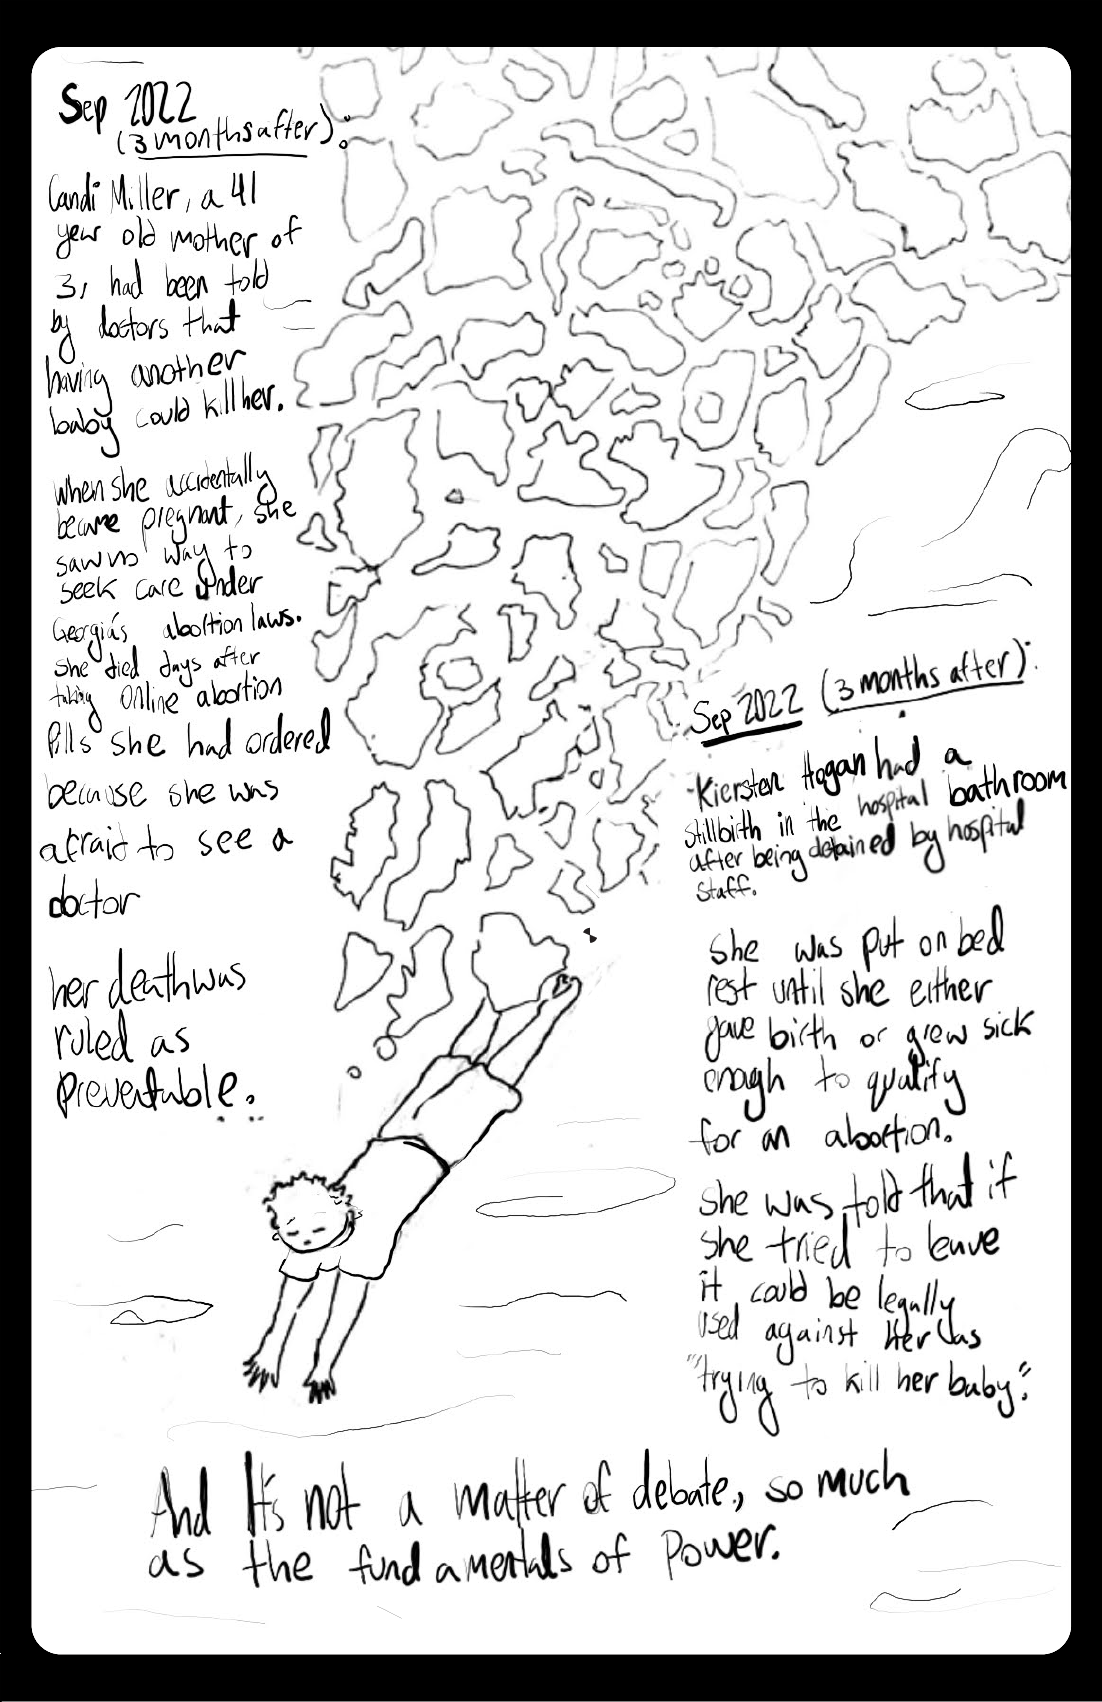 Sep 2022
(3 months after):
Candi Miller, a 41
year old mother of
3, had been told
by doctors that
having another
baby could kill her.
when she accidentally
became pregnant, she
saw no way to
seek care under
Georgia's abortion laws.
She died days after
taking online abortion
Pills she had ordered
because she was
afraid to see a
doctor
her death was
ruled as
preventable.
Sep 2022 (3 months after):
Kiersten Hogan had a
stillbirth in the hospital bathroom
after being detained by hospital
staff.
She was put on bed
rest until she either
gave birth or grew sick
enough to qualify
for an abortion.
She was told that if
she tried to leave
it could be legally
used against Her as
"trying to kill her baby".
And It's not a matter of debate, so much
as the fundamentals of Power.